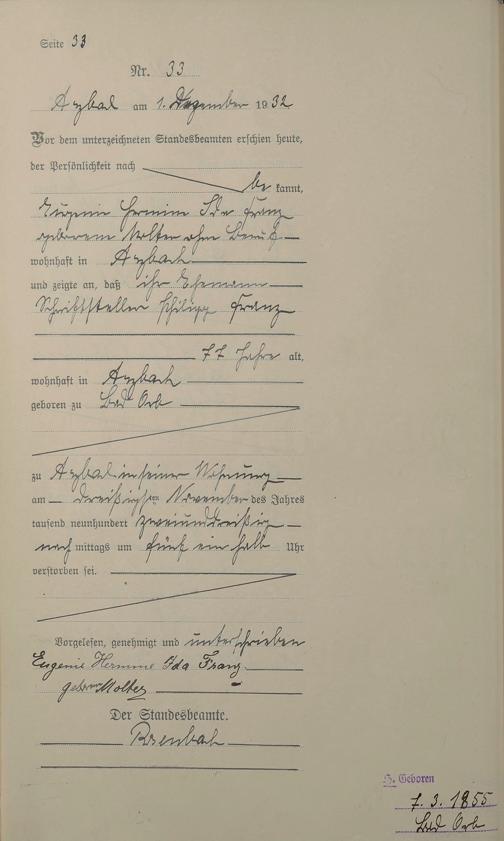 Seite 33
Nr. 33
Arzbach am 1. Dezember 1932
Vor dem unterzeichneten Standesbeamten erschien heute,
der Persönlichkeit nach
be kannt,
Eugenie Hermine Ida Franz
geborene Molter ohne Beruf
wohnhaft in Arzbach
und zeigte an, daß ihr Ehemann
Schriftsteller Philipp Franz
77 Jahre alt,
wohnhaft in Arzbach
geboren zu Bad Orb
zu Arzbach in seiner Wohnung
am dreißigsten November des Jahres
tausend neunhundert zweiunddreißig
nach mittags um fünf ein halb Uhr
verstorben sei.
Vorgelesen, genehmigt und unterschrieben
Eugenie Hermine Ida Franz
geborene Molter
Der Standesbeamte.
Rosenbach
H. Geboren
7. 3. 1855
Bad Orb